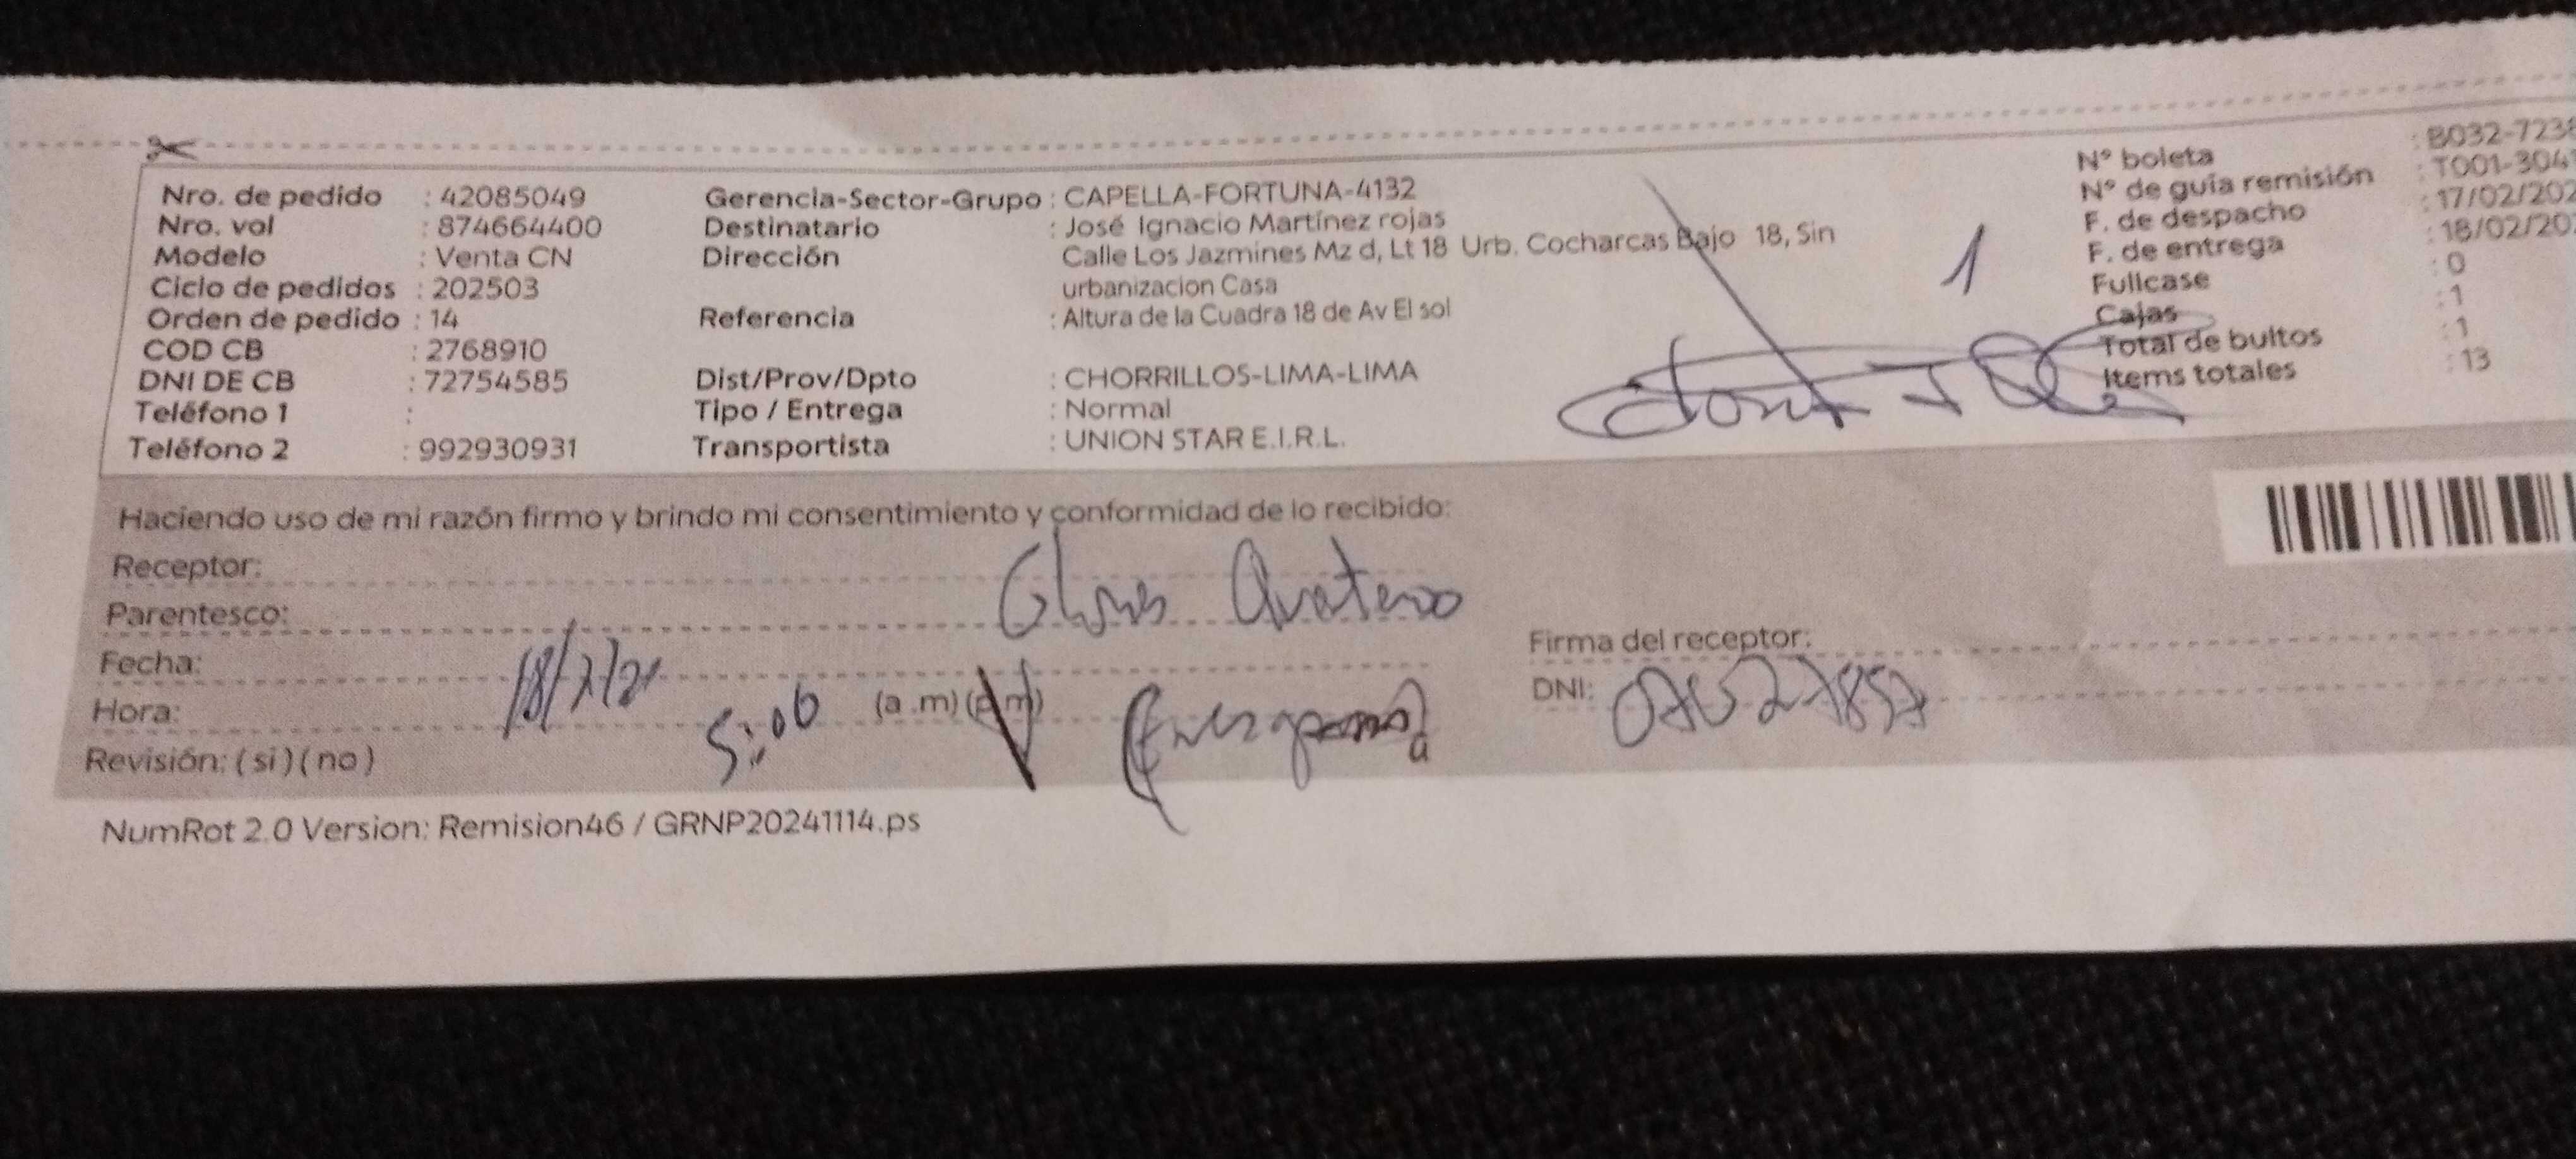 Nro. de pedido : 42085049 Gerencia-Sector-Grupo : CAPELLA-FORTUNA-4132 N° boleta : B032-7238
Nro. vol : 874664400 Destinatario : José Ignacio Martínez rojas N° de guía remisión : T001-304
Modelo : Venta CN Dirección : Calle Los Jazmines Mz d, Lt 18 Urb. Cocharcas Bajo 18, Sin F. de despacho : 17/02/202
Ciclo de pedidos : 202503 urbanizacion Casa 1 F. de entrega : 18/02/202
Orden de pedido : 14 Referencia : Altura de la Cuadra 18 de Av El sol Fullcase : 0
COD CB : 2768910 Cajas : 1
DNI DE CB : 72754585 Dist/Prov/Dpto : CHORRILLOS-LIMA-LIMA Total de bultos : 1
Teléfono 1 : Tipo / Entrega : Normal Items totales : 13
Teléfono 2 : 992930931 Transportista : UNION STAR E.I.R.L.
Haciendo uso de mi razón firmo y brindo mi consentimiento y conformidad de lo recibido:
Receptor:
Parentesco:
Fecha: Firma del receptor:
Hora: 5:06 (a.m) (p.m) DNI:
Revisión: ( si ) ( no )
NumRot 2.0 Version: Remision46 / GRNP20241114.ps